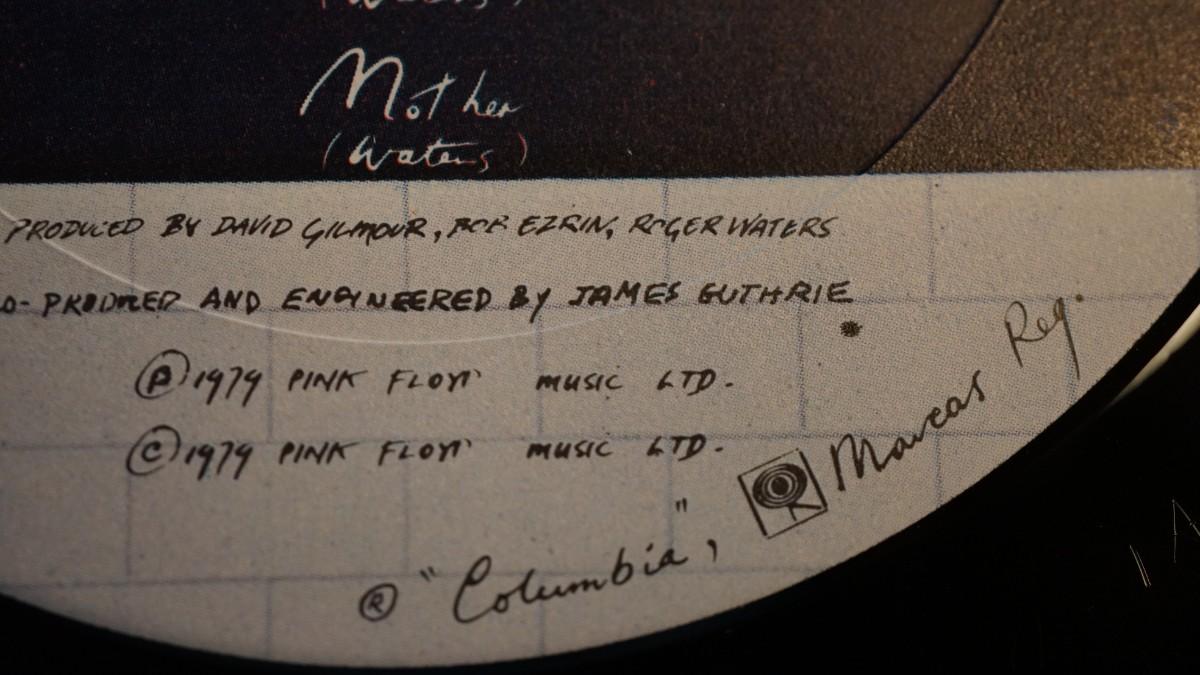 (Waters)
Mother
(Waters)
PRODUCED BY DAVID GILMOUR, BOB EZRIN, ROGER WATERS
O-PRODUCED AND ENGINEERED BY JAMES GUTHRIE
Ⓟ 1979 PINK FLOYD MUSIC LTD.
© 1979 PINK FLOYD MUSIC LTD.
® "Columbia", Marcas Reg.